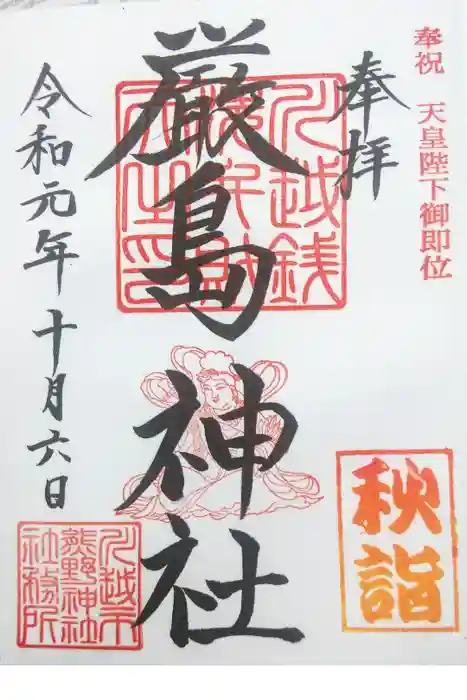 奉祝 天皇陛下御即位
秋詣
奉拝
川越銭
洗弁財
厳島神社
令和元年十月六日
川越市
熊野神社
社務所